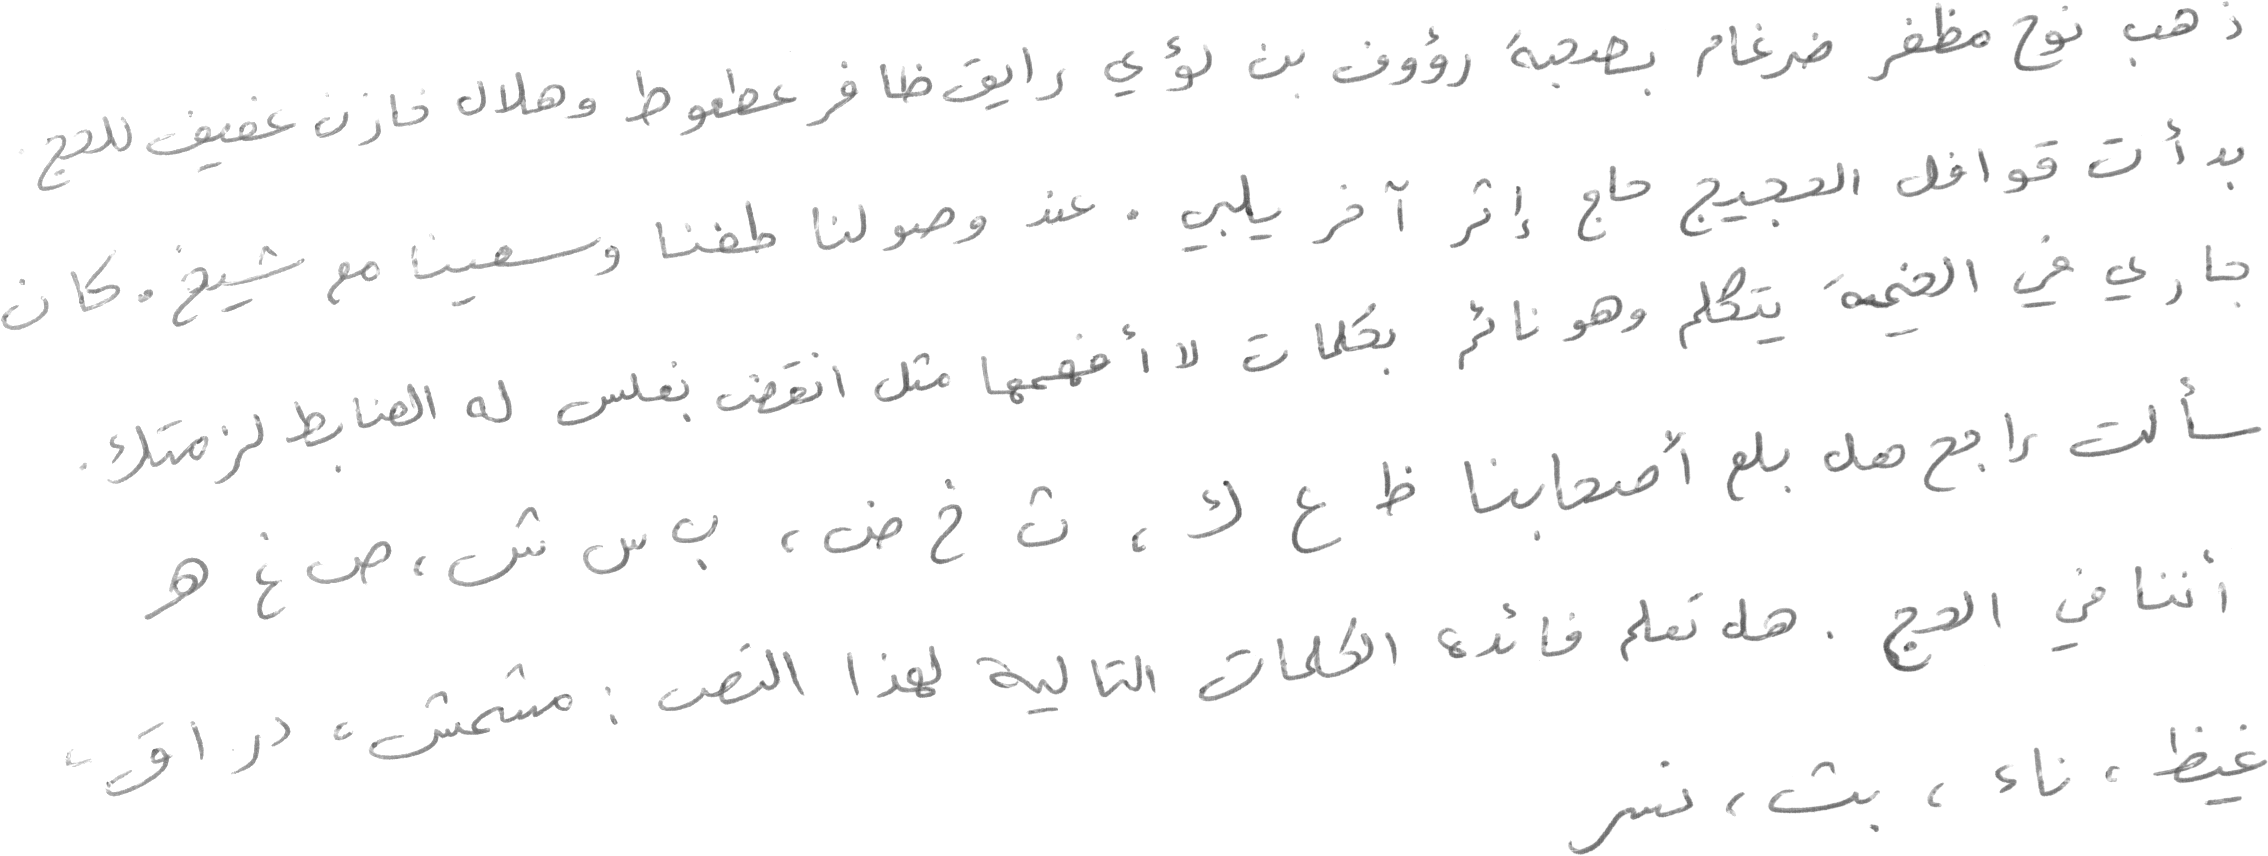 ذهب نوح مظفر ضرغام بصحبة رؤوف بن لؤي رايق ظافر عطعوط وهلال خازن عفيف للحج.
بدأت قوافل الحجيج حاج إثر آخر يلبي. عند وصولنا طفنا وسعينا مع شيخ. كان
جاري في الخيمة يتكلم وهو نائم بكلمات لا أفهمها مثل انقض بغلس له الضابط لزمتك.
سألت راجح هل بلع أصحابنا ظ ع ك، ث خ ض، ب س ش، ص غ هـ
أننا في الحج. هل تعلم فائدة الكلمات التالية لهذا النص: مشمش، دراق،
غيظ، ناء، بث، نسر